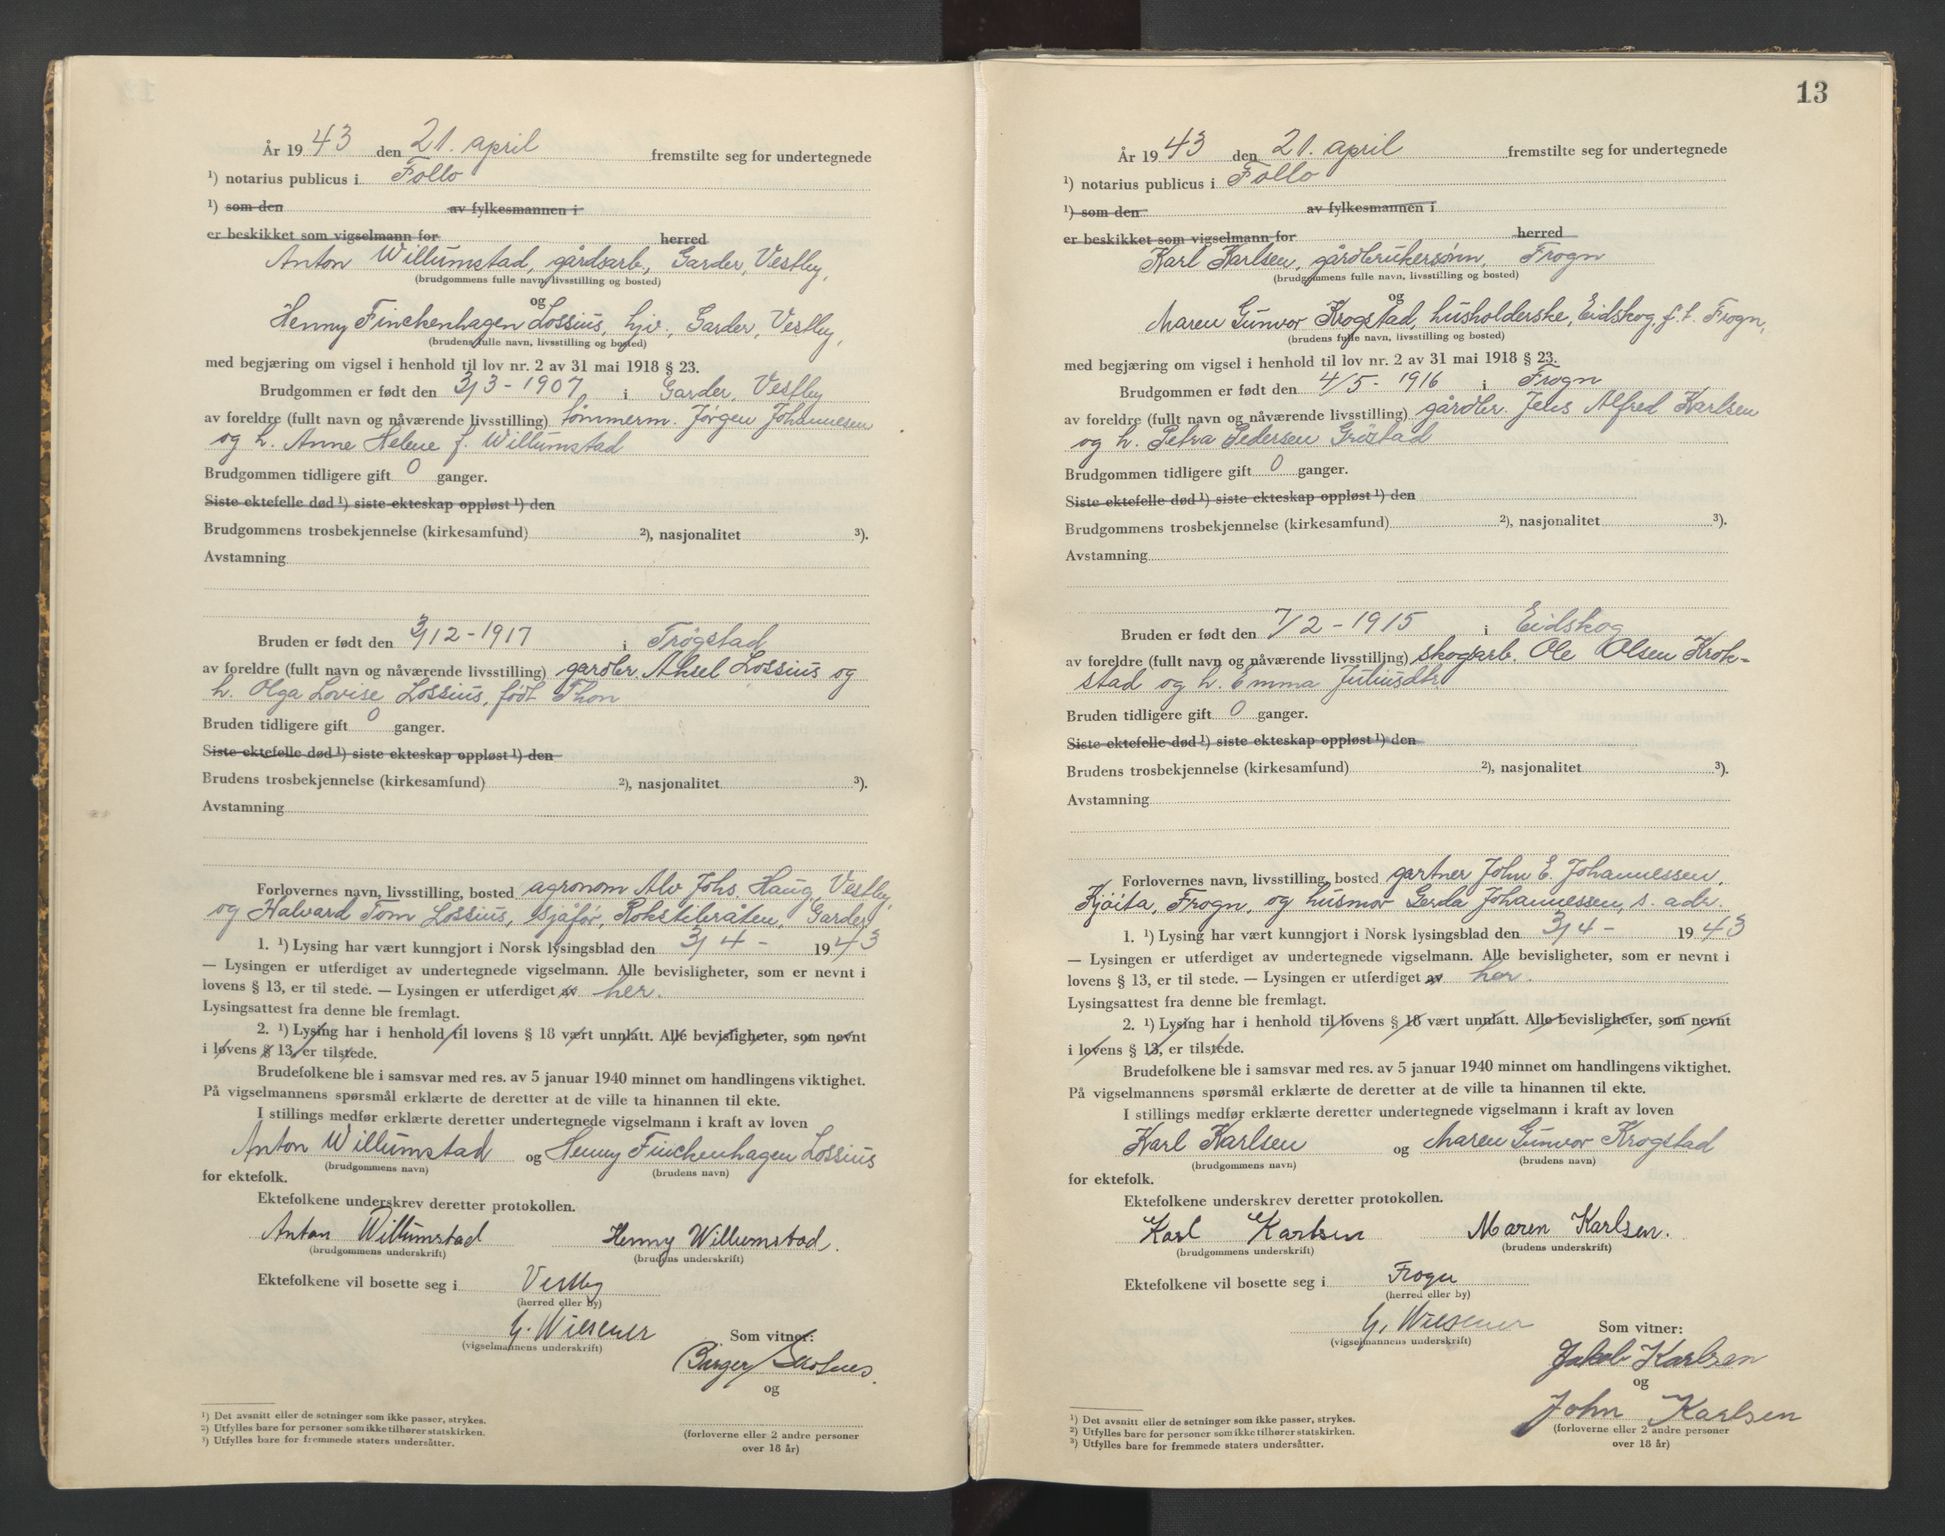 År 19 43 den 21. april fremstilte seg for undertegnede
¹) notarius publicus i Follo
¹) som den av fylkesmannen i
er beskikket som vigselmann for herred
Anton Willumstad, gårdsarb., Garder, Vestby,
(brudgommens fulle navn, livsstilling og bosted)
og
Henny Finckenhagen Lossius, hjv., Garder, Vestby,
(brudens fulle navn, livsstilling og bosted)
med begjæring om vigsel i henhold til lov nr. 2 av 31 mai 1918 § 23.
Brudgommen er født den 3/3 - 1907 i Garder, Vestby
av foreldre (fullt navn og nåværende livsstilling) tømmerm. Jørgen Johannesen
og h. Anne Helene f. Willumstad
Brudgommen tidligere gift 0 ganger.
Siste ektefelle død ¹) siste ekteskap oppløst ¹) den
Brudgommens trosbekjennelse (kirkesamfund) ²), nasjonalitet ³).
Avstamning
Bruden er født den 3/12 - 1917 i Trøgstad
av foreldre (fullt navn og nåværende livsstilling) gardbr. Aksel Lossius og
h. Olga Lovise Lossius, født Thon
Bruden tidligere gift 0 ganger.
Siste ektefelle død ¹) siste ekteskap oppløst ¹) den
Brudens trosbekjennelse (kirkesamfund) ²), nasjonalitet ³).
Avstamning
Forlovernes navn, livsstilling, bosted agronom Alv Johs. Haug, Vestby,
og Halvard Tom Lossius, sjåfør, Rokstibråten, Garder
1. ¹) Lysing har vært kunngjort i Norsk lysingsblad den 3/4 - 1943
— Lysingen er utferdiget av undertegnede vigselmann. Alle bevisligheter, som er nevnt i
lovens § 13, er til stede. — Lysingen er utferdiget av her.
Lysingsattest fra denne ble fremlagt.
2. ¹) Lysing har i henhold til lovens § 18 vært unnlatt. Alle bevisligheter, som nevnt
i lovens § 13, er tilstede.
Brudefolkene ble i samsvar med res. av 5 januar 1940 minnet om handlingens viktighet.
På vigselmannens spørsmål erklærte de deretter at de ville ta hinannen til ekte.
I stillings medfør erklærte deretter undertegnede vigselmann i kraft av loven
Anton Willumstad og Henny Finckenhagen Lossius
(brudgommens navn) (brudens navn)
for ektefolk.
Ektefolkene underskrev deretter protokollen.
Anton Willumstad Henny Willumstad.
(brudgommens underskrift) (brudens underskrift)
Ektefolkene vil bosette seg i Vestby
(herred eller by)
G. Wiesener Som vitner:
(vigselmannens underskrift)
Birger
og
¹) Det avsnitt eller de setninger som ikke passer, strykes.
²) Utfylles bare for personer som ikke tilhører statskirken.
³) Utfylles bare for fremmede staters undersåtter.
(forloverne eller 2 andre personer
over 18 år)
13
År 19 43 den 21. april fremstilte seg for undertegnede
¹) notarius publicus i Follo
¹) som den av fylkesmannen i
er beskikket som vigselmann for herred
Karl Karlsen, gårdbrukersønn, Frogn
(brudgommens fulle navn, livsstilling og bosted)
og
Maren Gunvor Krogstad, husholderske, Eidskog, f.t. Frogn,
(brudens fulle navn, livsstilling og bosted)
med begjæring om vigsel i henhold til lov nr. 2 av 31 mai 1918 § 23.
Brudgommen er født den 4/5 - 1916 i Frogn
av foreldre (fullt navn og nåværende livsstilling) gårdbr. Jens Alfred Karlsen
og h. Petra Pedersen Grøstad
Brudgommen tidligere gift 0 ganger.
Siste ektefelle død ¹) siste ekteskap oppløst ¹) den
Brudgommens trosbekjennelse (kirkesamfund) ²), nasjonalitet ³).
Avstamning
Bruden er født den 7/2 - 1915 i Eidskog
av foreldre (fullt navn og nåværende livsstilling) skogarb. Ole Olsen Krok-
stad og h. Emma Juliusdtr.
Bruden tidligere gift 0 ganger.
Siste ektefelle død ¹) siste ekteskap oppløst ¹) den
Brudens trosbekjennelse (kirkesamfund) ²), nasjonalitet ³).
Avstamning
Forlovernes navn, livsstilling, bosted gartner John E. Johannessen,
Kjøita, Frogn, og husmor Gerda Johannessen, s. adr.
1. ¹) Lysing har vært kunngjort i Norsk lysingsblad den 3/4 - 1943
— Lysingen er utferdiget av undertegnede vigselmann. Alle bevisligheter, som er nevnt i
lovens § 13, er til stede. — Lysingen er utferdiget av her.
Lysingsattest fra denne ble fremlagt.
2. ¹) Lysing har i henhold til lovens § 18 vært unnlatt. Alle bevisligheter, som nevnt
i lovens § 13, er tilstede.
Brudefolkene ble i samsvar med res. av 5 januar 1940 minnet om handlingens viktighet.
På vigselmannens spørsmål erklærte de deretter at de ville ta hinannen til ekte.
I stillings medfør erklærte deretter undertegnede vigselmann i kraft av loven
Karl Karlsen og Maren Gunvor Krogstad
(brudgommens navn) (brudens navn)
for ektefolk.
Ektefolkene underskrev deretter protokollen.
Karl Karlsen Maren Karlsen.
(brudgommens underskrift) (brudens underskrift)
Ektefolkene vil bosette seg i Frogn
(herred eller by)
G. Wiesener Som vitner:
(vigselmannens underskrift)
Jakob Karlsen
og
John Karlsen
¹) Det avsnitt eller de setninger som ikke passer, strykes.
²) Utfylles bare for personer som ikke tilhører statskirken.
³) Utfylles bare for fremmede staters undersåtter.
(forloverne eller 2 andre personer
over 18 år)